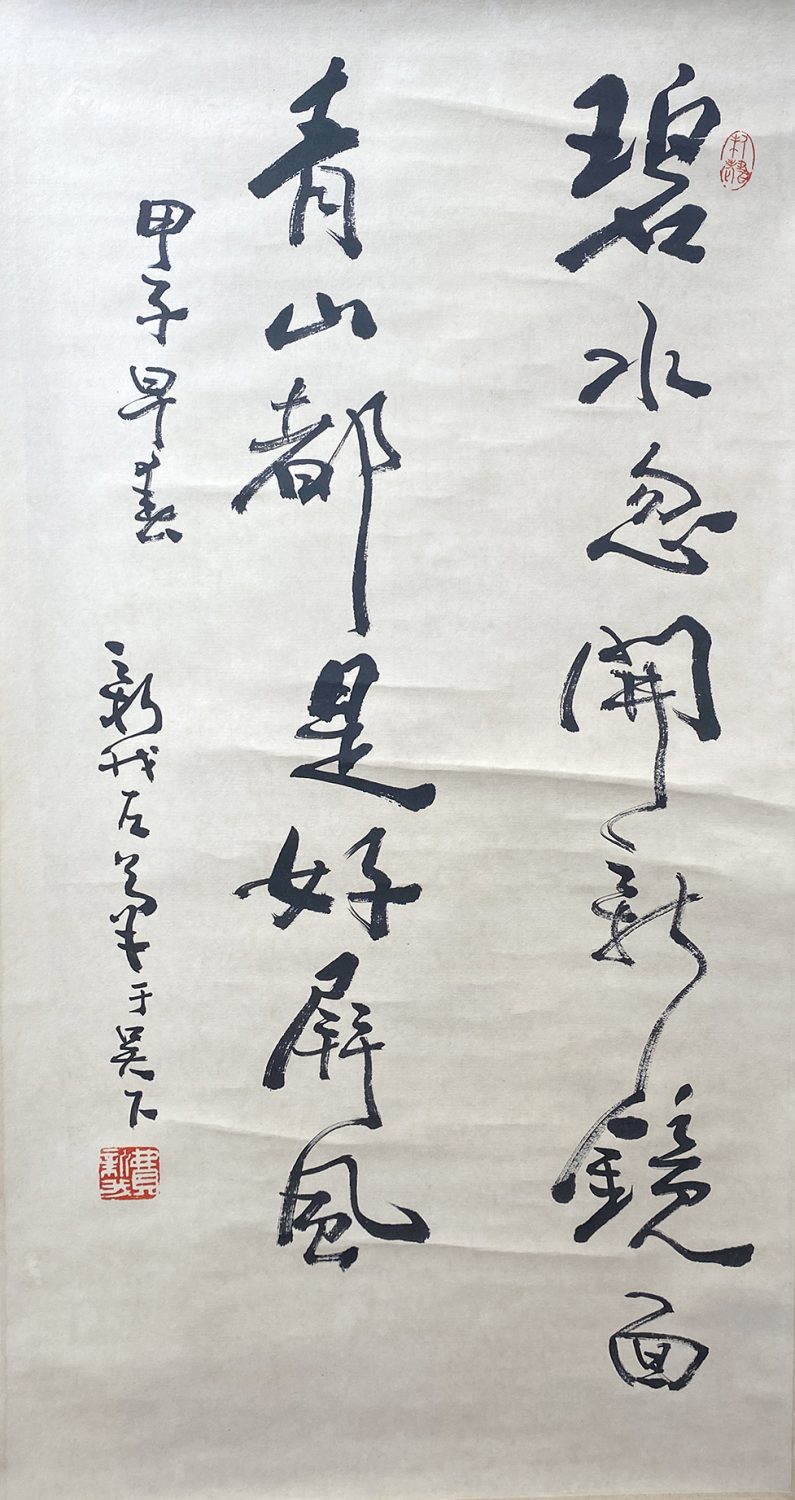 碧水忽開新鏡面
青山都是好屏風
甲子早春
新我左筆于吳下
費新我